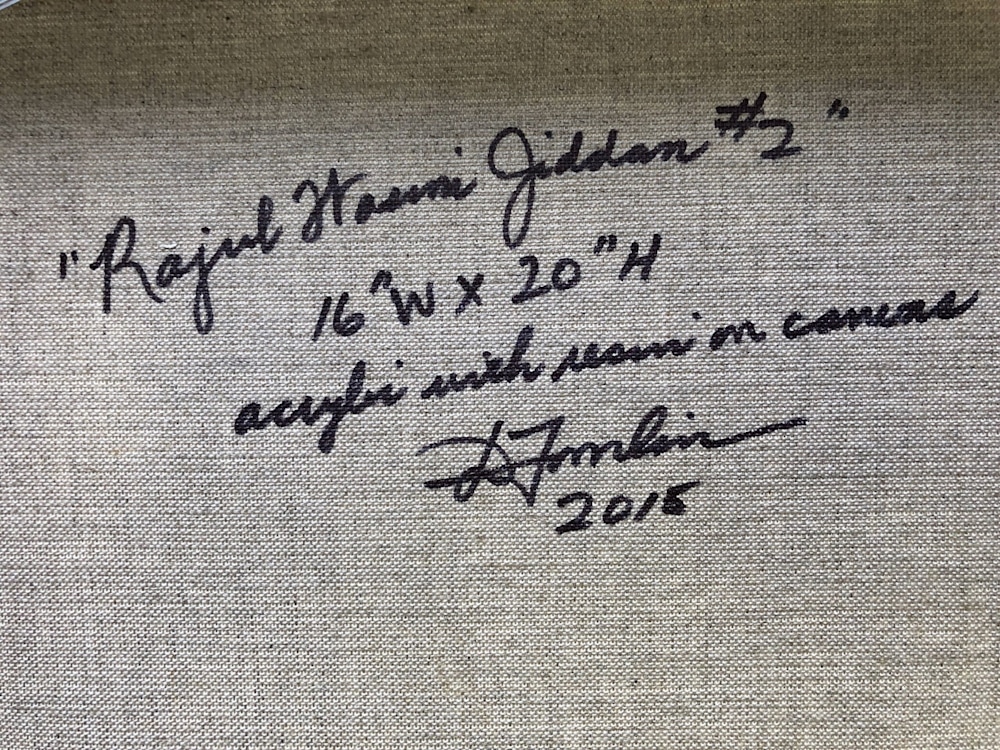 "Rajul Hasim Jiddan #2"
16"W X 20"H
acrylic with resin on canvas
D Tomlin
2015